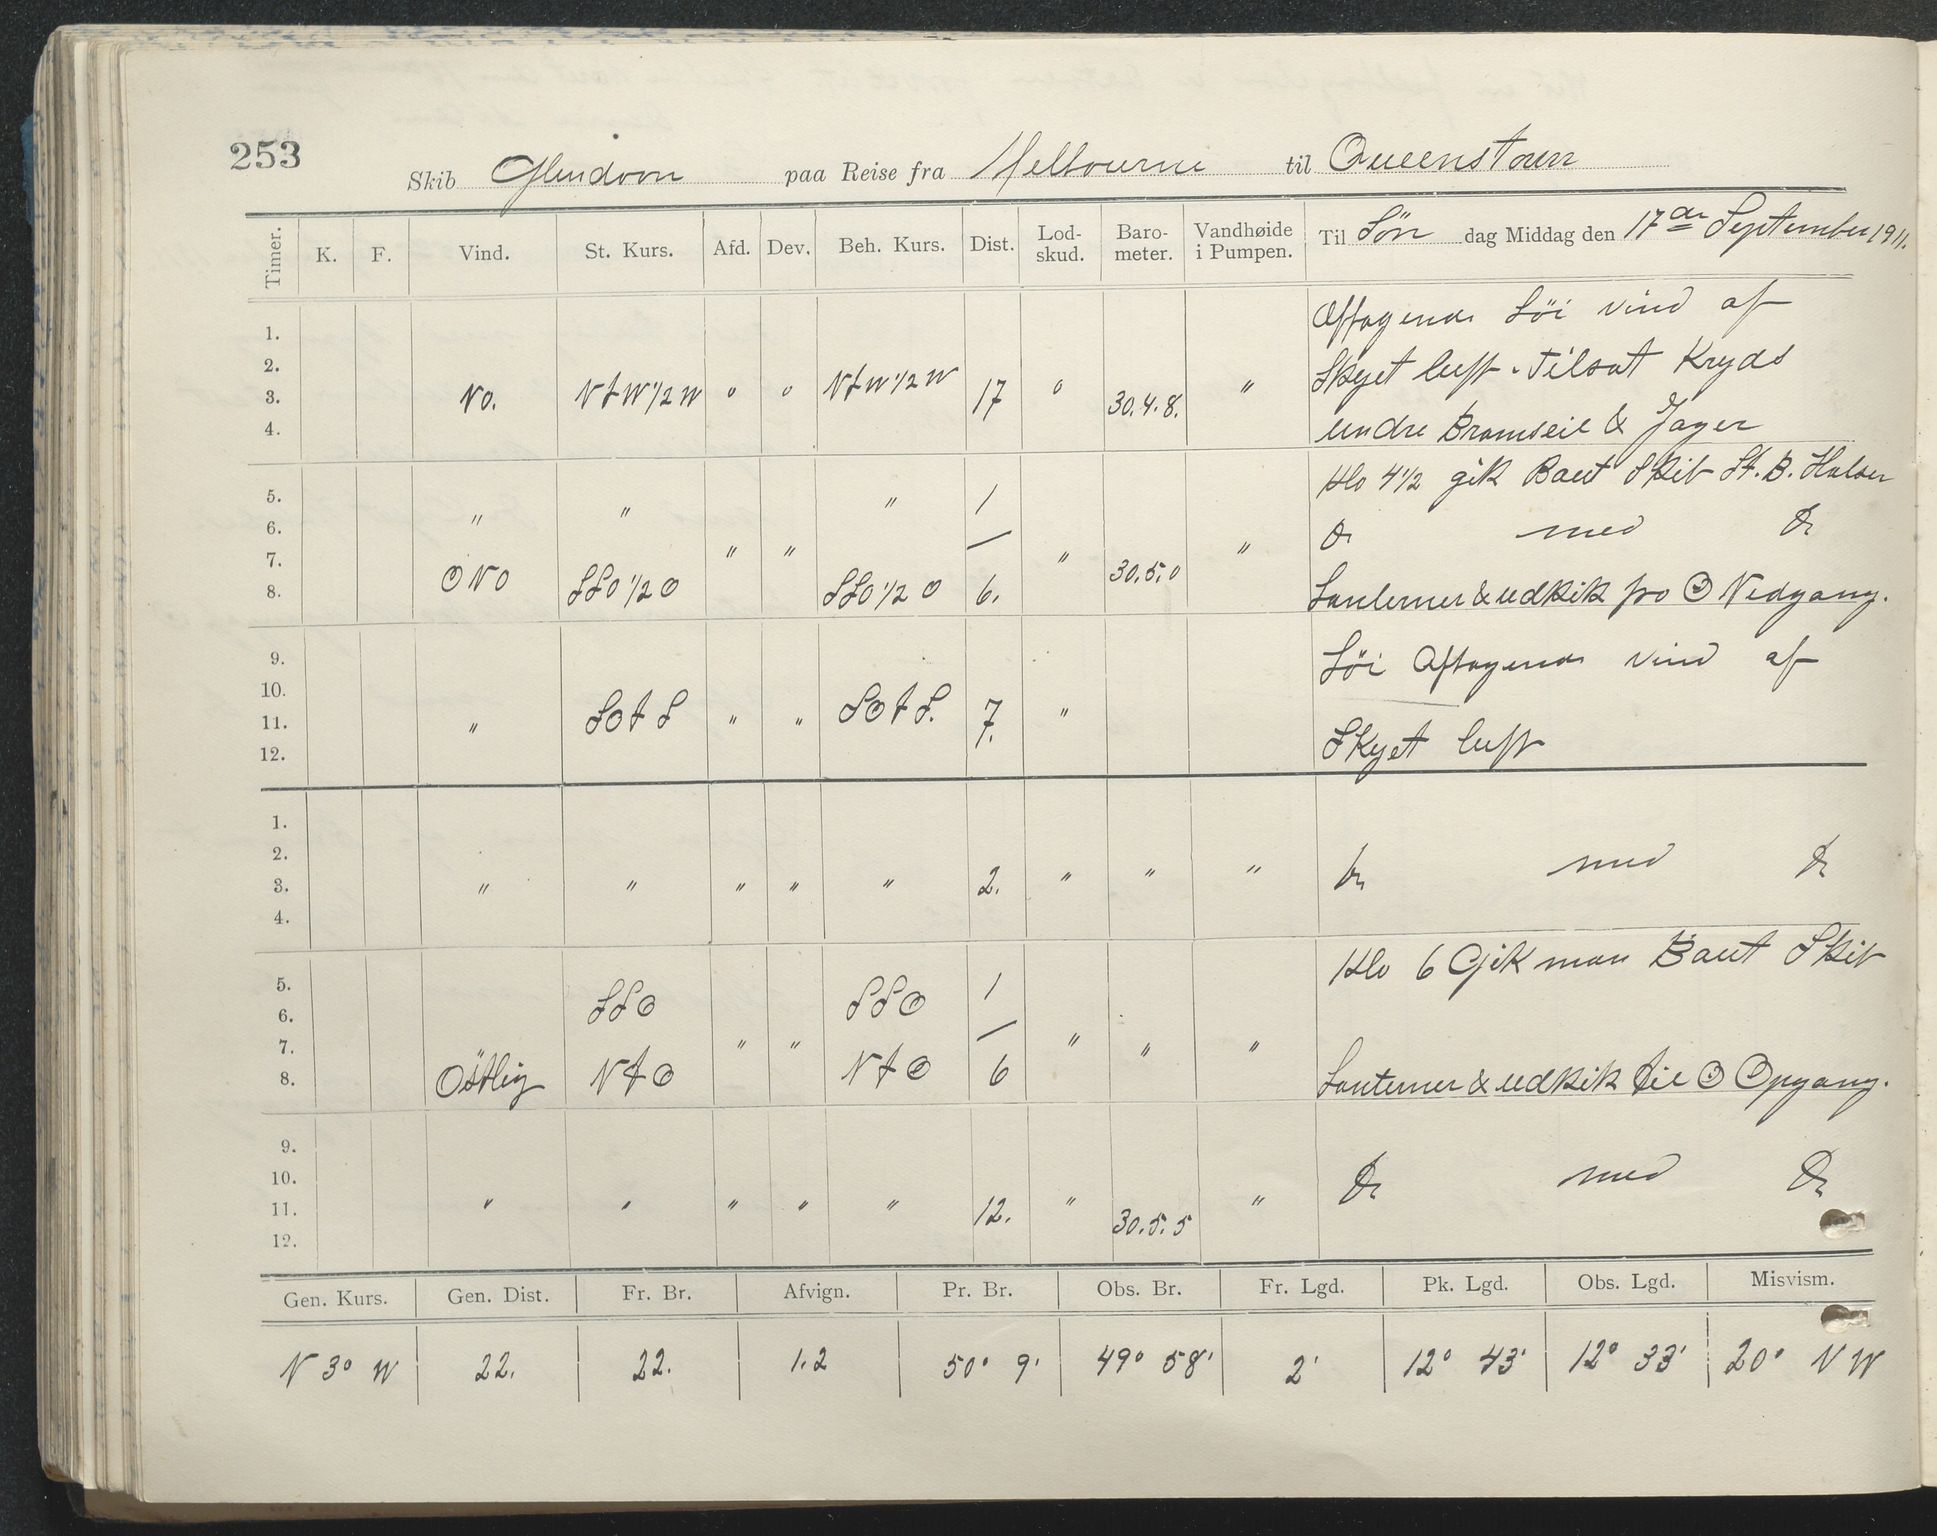 253
Skib Glendoon paa Reise fra Melbourne til Queenstown
Timer. K. F. Vind. St. Kurs. Afd. Dev. Beh. Kurs. Dist. Lod-skud. Baro-meter. Vandhøide i Pumpen. Til Sön dag Middag den 17de September 1911.
1. Aftagende Löi vind af
2. Skyet luft. Tilsat Kryds
3. No. NtW 1/2 W " " NtW 1/2 W 17 " 30.4.8. "
4. undre Bramseil & Jager
5. " " " 1 Klo 4 1/2 gik Baut Skib St. B. Halser
6. " " — " " Do med Do
7. 30.5.0
8. ONO SSO 1/2 O SSO 1/2 O 6. Lanterner & udkik fra ☉ Nedgang.
9. Löi Aftagende vind af
10.
11. " SOtS " " SOtS. 7. "
12. Skyet luft
1.
2. Do med Do
3. " " " " " 2. " " "
4.
5. Klo 6 Gik man Baut Skib
6. SSO SSO 1
7. " " — " " "
8. Östlig NtO NtO 6 Lanterner & udkik til ☉ Opgang.
9.
10. Do med Do
11. " " " " " 12. " 30.5.5 "
12.
Gen. Kurs. Gen. Dist. Fr. Br. Afvign. Pr. Br. Obs. Br. Fr. Lgd. Pk. Lgd. Obs. Lgd. Misvism.
N 3° W 22. 22. 1.2 50° 9' 49° 58' 2' 12° 43' 12° 33' 20° NW